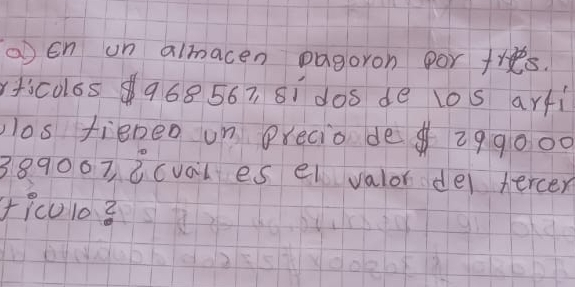 a) En un almacen pagoron por tres.
rticulos $968567, si dos de los arti
los tienen un precio de $ 299000
389007, ¿cual es el valor del tercer
ticulo?